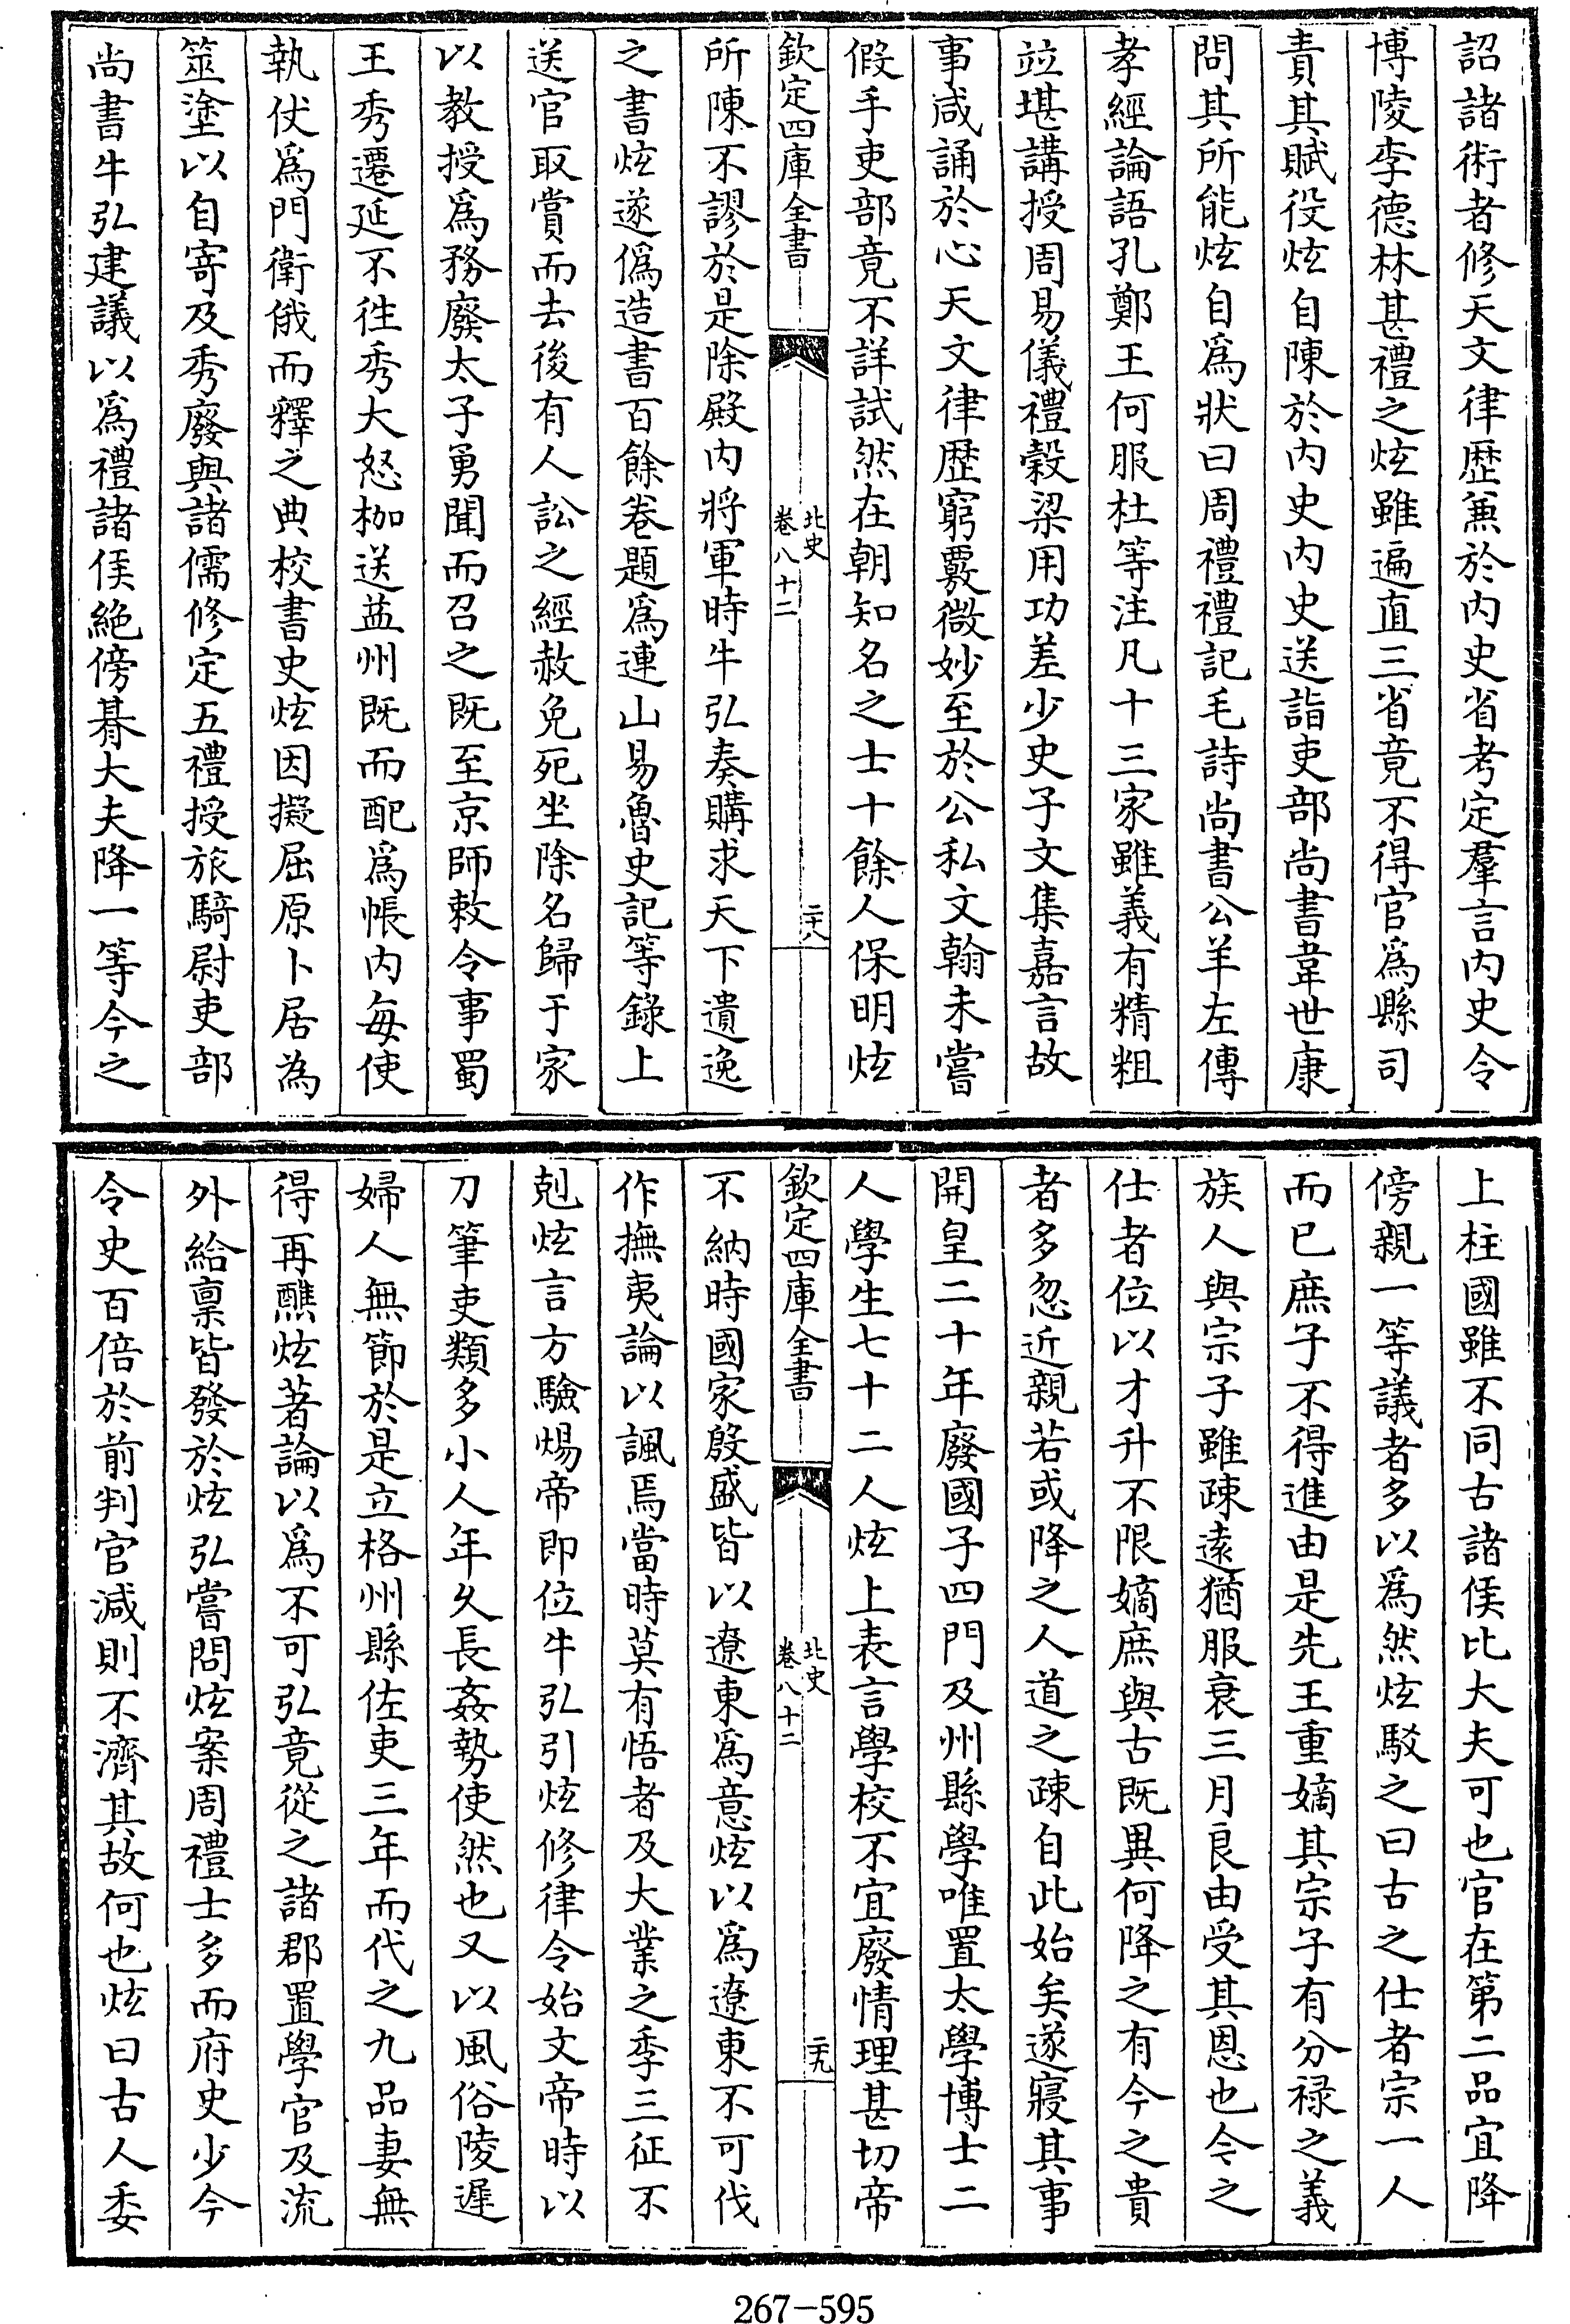 詔諸術者修天文律歴兼於内史省考定羣言内史令
博陵李德林甚禮之炫雖遍直三省竟不得官爲縣司
責其賦役炫自陳於内史内史送詣吏部尚書韋世康
問其所能炫自爲狀曰周禮禮記毛詩尚書公羊左傳
孝經論語孔鄭王何服杜等注凡十三家雖義有精粗
竝堪講授周易儀禮穀梁用功差少史子文集嘉言故
事咸誦於心天文律歴窮覈微妙至於公私文翰未嘗
假手吏部竟不詳試然在朝知名之士十餘人保明炫
欽定四庫全書
北史
卷八十二
二十八
所陳不謬於是除殿内將軍時牛弘奏購求天下遺逸
之書炫遂僞造書百餘卷題爲連山易魯史記等錄上
送官取賞而去後有人訟之經赦免死坐除名歸于家
以教授爲務廢太子勇聞而召之既至京師敕令事蜀
王秀遷延不徃秀大怒枷送益州既而配爲帳内每使
執仗爲門衛俄而釋之典校書史炫因擬屈原卜居為
筮塗以自寄及秀廢與諸儒修定五禮授旅騎尉吏部
尚書牛弘建議以爲禮諸侯絶傍朞大夫降一等今之
上柱國雖不同古諸侯比大夫可也官在第二品宜降
傍親一等議者多以爲然炫駁之曰古之仕者宗一人
而已庶子不得進由是先王重嫡其宗子有分禄之義
族人與宗子雖疎遠猶服衰三月良由受其恩也今之
仕者位以才升不限嫡庶與古既異何降之有今之貴
者多忽近親若或降之人道之疎自此始矣遂寢其事
開皇二十年廢國子四門及州縣學唯置太學博士二
人學生七十二人炫上表言學校不宜廢情理甚切帝
欽定四庫全書
北史
卷八十二
二十九
不納時國家殷盛皆以遼東爲意炫以爲遼東不可伐
作撫夷論以諷焉當時莫有悟者及大業之季三征不
剋炫言方驗煬帝即位牛弘引炫修律令始文帝時以
刀筆吏類多小人年久長姦勢使然也又以風俗陵遲
婦人無節於是立格州縣佐吏三年而代之九品妻無
得再醮炫著論以爲不可弘竟從之諸郡置學官及流
外給稟皆發於炫弘嘗問炫案周禮士多而府史少今
令史百倍於前判官減則不濟其故何也炫曰古人委
267-595